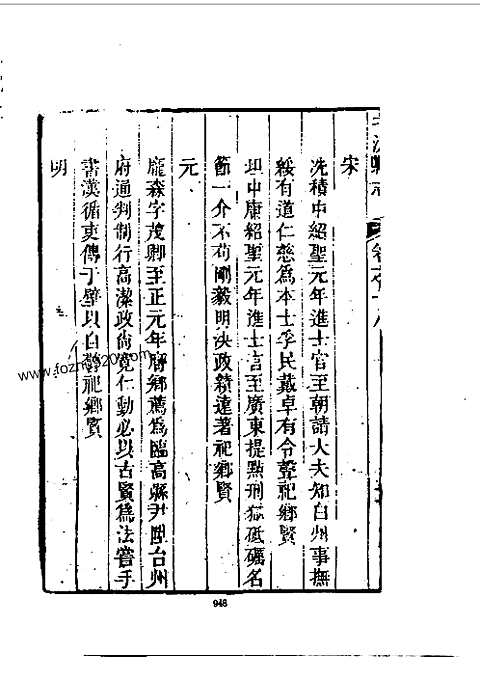 宋
冼積中紹聖元年進士官至朝請大夫知白州事撫
綏有道仁慈為本士孚民戴卓有令聲祀鄉賢
坦中康紹聖元年進士言至廣東提點刑獄砥礪名
節一介不苟剛毅明決政績達著祀鄉賢
元
龐森字茂卿至正元年膺鄉薦為臨高縣尹陞台州
府通判制行高潔政尚寬仁動必以古賢為法嘗手
書漢循吏傳于壁以自警祀鄉賢
明
www.fozhu920.com
948